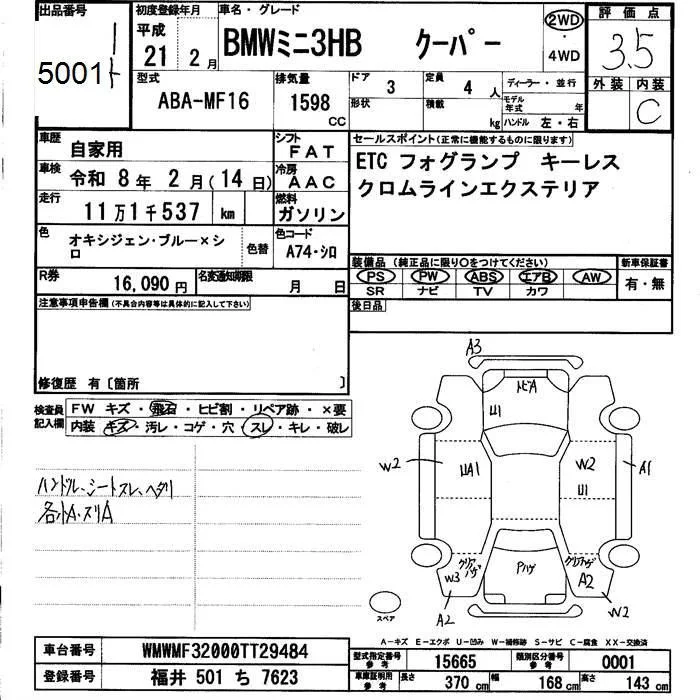 出品番号
5001
初度登録年月
平成
21 2 月
車名・グレード
BMWミニ3HB クーパー
2WD
・
4WD
評価点
3.5
外装 内装
C
型式
ABA-MF16
排気量
1598 CC
ドア
3
定員
4 人
形状
積載
kg
ディーラー・並行
モデル年式 年
ハンドル 左・右
車歴
自家用
シフト
FAT
車検
令和 8 年 2 月(14 日)
冷房
AAC
走行
11 万 1 千 537 km
燃料
ガソリン
色
オキシジェン・ブルー×シロ
色替
色コード
A74・シロ
R券
16,090 円
名変通知期限
月 日
セールスポイント(正常に機能するものに限ります)
ETC フォグランプ キーレス
クロムラインエクステリア
装備品 (純正品に限り○をつけてください)
PS PW ABS エアB AW
SR ナビ TV カワ
新車保証書
有・無
後日品
注意事項申告欄(不具合内容等は具体的に記入して下さい)
修復歴 有〔箇所 〕
検査員記入欄
FW キズ・飛石・ヒビ割・リペア跡・×要
内装 キズ・汚レ・コゲ・穴・スレ・キレ・破レ
ハンドル、シートスレ、ヘタリ
各小A.スリA
A3
トビA
U1
W2
UA1
W2
U1
A1
クリアハゲ
W3
A2
Pハゲ
クリアハゲ
A2
W2
スペア
A-キズ E-エクボ U-凹み W-補修跡 S-サビ C-腐食 XX-交換済
車台番号
WMWMF32000TT29484
登録番号
福井 501 ち 7623
型式指定番号
参考
15665
類別区分番号
参考
0001
車庫証明用
参考
長さ
370 cm
幅
168 cm
高さ
143 cm